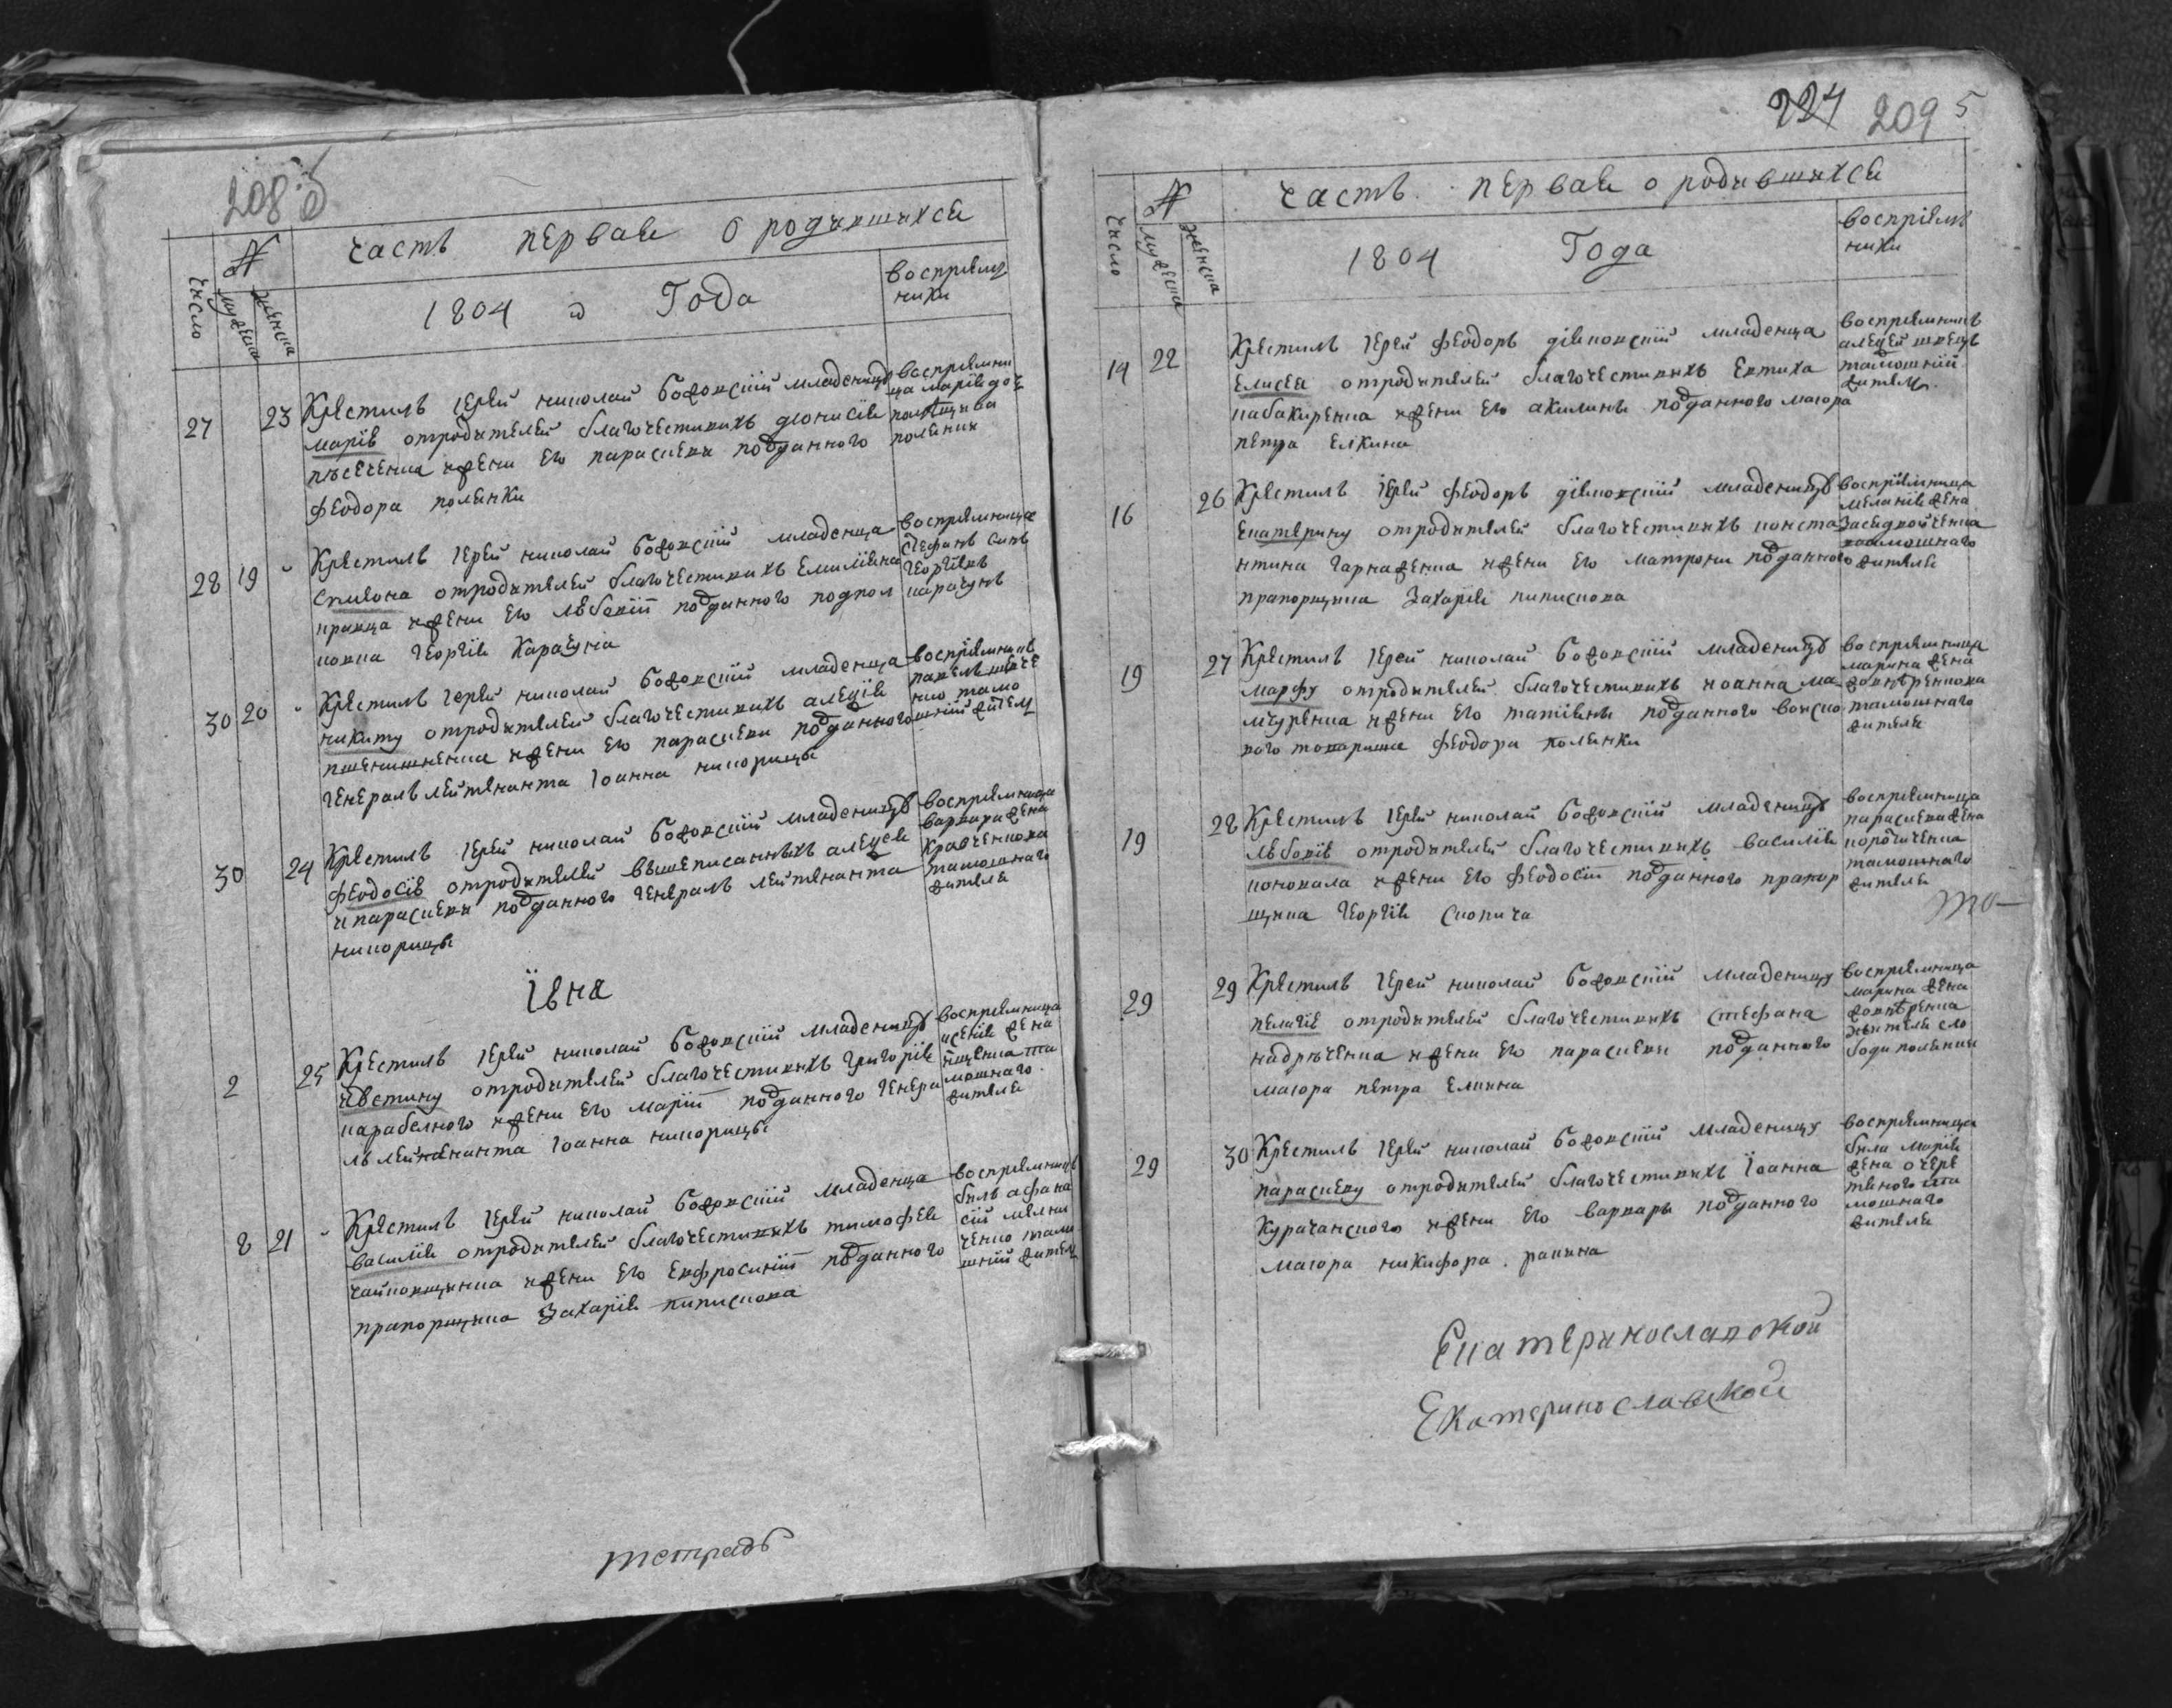 208 б
Число
№
мужеска
женска
Часть первая о родившихся
1804 Года
восприем
ники
27 23 Крестилъ Іерей николай божовскій младеницу
марію отродителей благочестивыхъ діонисія
пъсеченка ижени Его параскеви подданного
Феодора полѣнки
восприемни
ца марія доч
полѣнки
28 19 Крестилъ Іерей николай божовскій младенца
Сімеона отродителей благочестивыхъ Емиліяна
кравца ижени Его любовіи подданного подпол
ковна Георгія Карачуна
восприемникъ
Стефанъ синъ
Георгіевъ
карачунъ
30 20 Крестилъ Іерей николай божовскій младенца
никиту отродителей благочестивыхъ алеѯія
пшенишненка ижени Его параскеви подданного
Генералъ лейтенанта Іоанна никорицы
восприемникъ
павелъ шевче
нко тамо
шній житель
30 24 Крестилъ Іерей николай божовскій младеницу
Феодосію отродителей вышеписанныхъ алеѯея
ипараскеви подданного Генералъ лейтенанта
никорицы
восприемница
варвара жена
Кравченкова
тамошнаго
жителя
Іюня
2 25 Крестилъ Іерей николай божовскій младеницу
иѵстину отродителей благочестивыхъ Григорія
карабелного ижени Его маріи подданного Генера
лъ лейтенанта Іоанна никорицы
восприемница
ксенія жена
ищенка та
мошнаго
жителя
8 21 Крестилъ Іерей николай божовскій младенца
василія отродителей благочестивыхъ тимофея
чайковщенка ижени Его Евфросиніи подданного
прапорщика Захарія пипискова
восприемникъ
билъ афана
сій мелни
ченко тамо
шній житель
тетрадь
224 209 5
Число
№
мужеска
женска
Часть первая о родившихся
1804 Года
восприем
ники
14 22 Крестилъ Іерей Феодоръ діяковскій младенца
Елисея отродителей благочестивыхъ Евтиха
кабакиренка ижени Его акилины подданного маіора
петра Елкина
восприемникъ
алеѯей швецъ
тамошній
житель
16 26 Крестилъ Іерей Феодоръ діяковскій младеницу
Екатерину отродителей благочестивыхъ конста
нтина Гарнаженка ижени Его матрони подданного
прапорщика Захарія пипискова
восприемница
меланія жена
Засядкойченка
тамошнаго
жителя
19 27 Крестилъ Іерей николай божовскій младеницу
марфу отродителей благочестивыхъ иоанна ма
мчуренка ижени Его татіяны подданного войско
вого товариша Феодора полѣнки
восприемница
марина жена
довтѣренкова
тамошнаго
жителя
19 28 Крестилъ Іерей николай божовскій младеницу
любовію отродителей благочестивыхъ василія
коновала ижени Его Феодосіи подданного прапор
щика Георгія Сиопича
восприемница
параскева жена
коротиченка
тамошнаго
жителя
29 29 Крестилъ Іерей николай божовскій младеницу
пелагію отродителей благочестивыхъ Стефана
надтъченка ижени Его параскеви подданного
маіора петра Елкина
восприемница
марина жена
довтѣренка
жителя сло
боди полѣнки
29 30 Крестилъ Іерей николай божовскій младеницу
параскеву отродителей благочестивыхъ Іоанна
Курачанского ижени Его варвары подданного
маіора никифора рапина
восприемница
била марія
жена очере
тяного та
мошнаго
жителя
Екатеринославской
Екатеринославской